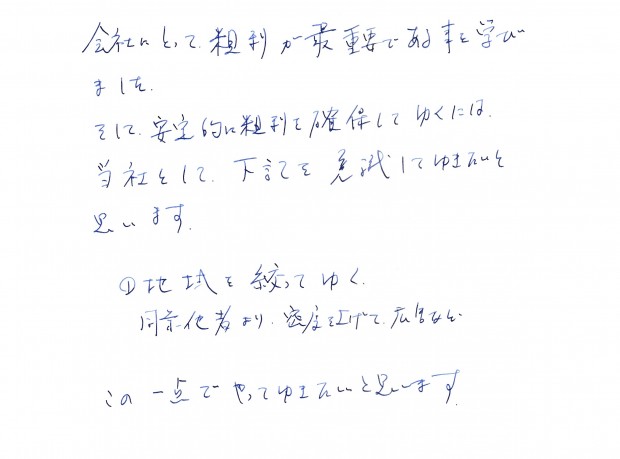 会社にとって、粗利が最重要である事を学び
ました。
そして、安定的に粗利を確保してゆくには、
当社として、下記を意識してゆきたいと
思います。
①地域を絞ってゆく、
同業他者より、密度を上げて、広告など
この一点でやってゆきたいと思います。